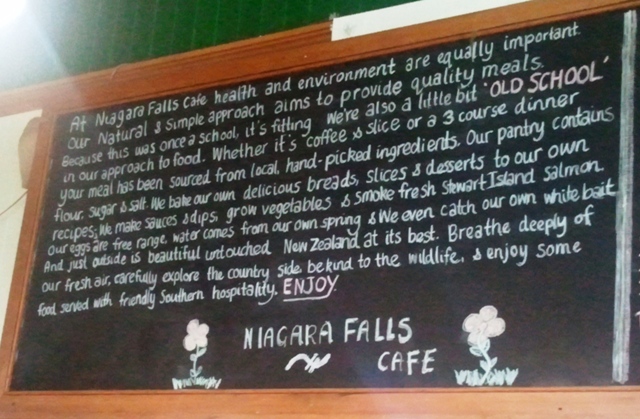 At Niagara Falls Cafe health and environment are equally important.
Our Natural & Simple approach aims to provide quality meals.
Because this was once a school, it's fitting we're also a little bit 'OLD SCHOOL'
in our approach to food. Whether it's coffee & slice or a 3 course dinner
your meal has been sourced from local, hand-picked ingredients. Our pantry contains
flour, sugar & salt. We bake our own delicious breads, slices & desserts to our own
recipes; We make sauces & dips, grow vegetables & smoke fresh Stewart Island salmon.
Our eggs are free range, water comes from our own spring & We even catch our own white bait
And just outside is beautiful untouched New Zealand at its best. Breathe deeply of
our fresh air, carefully explore the country side, be kind to the wildlife, & enjoy some
food served with friendly Southern hospitality. ENJOY
NIAGARA FALLS
CAFE